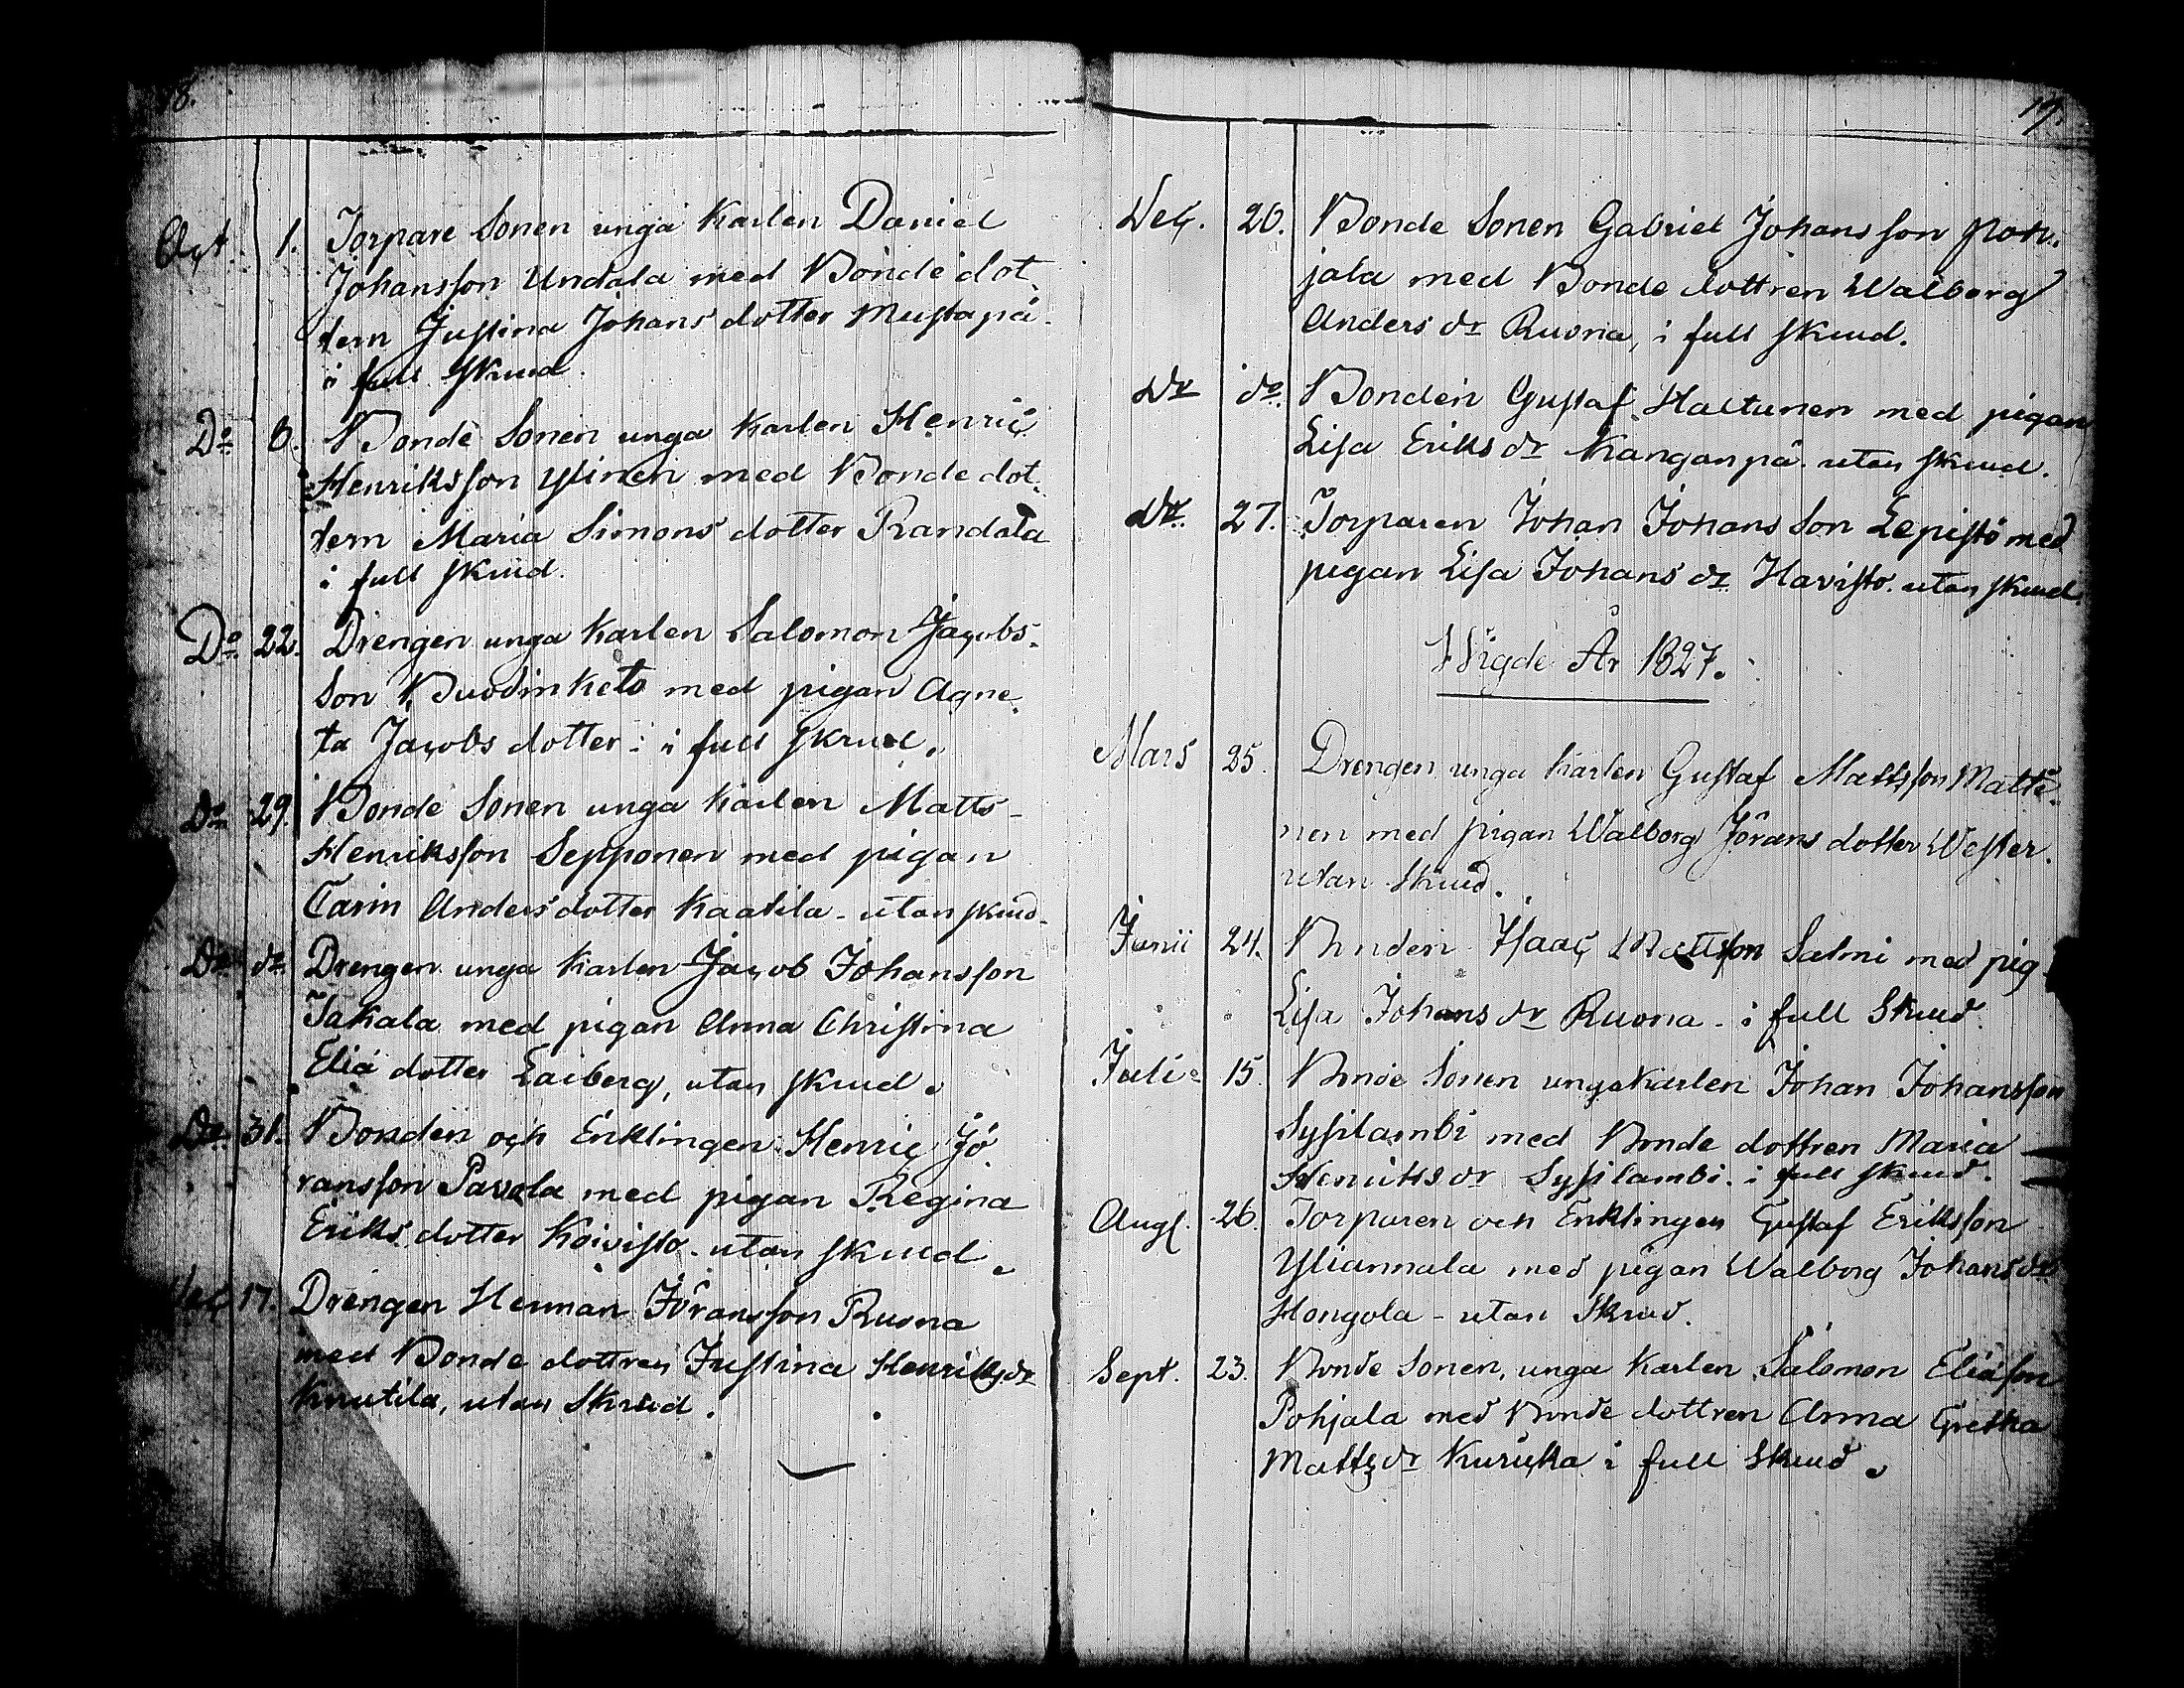 18.
Oct. 1. Torpare Sonen unga Karlen Daniel
Johansson Undala med Bonde dot
tern Justina Johans dotter Mustapä
i full skrud.
Do 8. Bonde Sonen unga Karlen Henric
Henriksson Ylinen med Bonde dot
tern Maria Simons dotter Randala
i full skrud.
Do 22. Drengen unga Karlen Salomon Jacobs
Son Buodinketo med pigan Agne
ta Jacobs dotter i full skrud.
Do 29. Bonde Sonen unga Karlen Matts
Henriksson Sepponen med pigan
Carin Anders dotter Kaatila utan skrud
Do do Drengen unga Karlen Jacob Johansson
Takala med pigan Anna Christina
Eliä dotter Laiberg, utan skrud.
Do 31. Bonden och Enklingen Henric Jö
ransson Pavola med pigan Regina
Eriks dotter Koivisto utan skrud.
Dec 17. Drengen Herman Jöransson Ruona
med Bonde dottren Justina Henriksdr
Knutila, utan Skrud.
19.
Dec. 26. Bonde Sonen Gabriel Johansson Poh
jala med Bonde dottren Walborg
Anders dr Ruona, i full skrud.
Do do. Bonden Gustaf Haltunen med pigan
Lisa Eriks dr Kanganpä utan skrud.
Do. 27. Torparen Johan Johans Son Lepistö med
pigan Lisa Johans dr Havisto utan skrud.
Wigde År 1827.
Mars 25. Drengen unga Karlen Gustaf Mattsson Matti
nen med pigan Walborg Jörans dotter Wester
utan skrud.
Junii 24. Bonden Isaac Mattsson Salmi med pig
Lisa Johans dr Ruona i full Skrud.
Juli 15. Bonde Sonen unga Karlen Johan Johansson
Sysilambi med Bonde dottren Maria
Henriks dr Sysilambi i full skrud.
Aug. 26. Torparen och Enklingen Gustaf Eriksson
Yliannala med pigan Walborg Johans dr
Hongola - utan Skrud.
Sept. 23. Bonde Sonen, unga Karlen Salomon Eliäson
Pohjala med Bonde dottren Anna Gretha
Matts dr Kurucka i full Skrud.